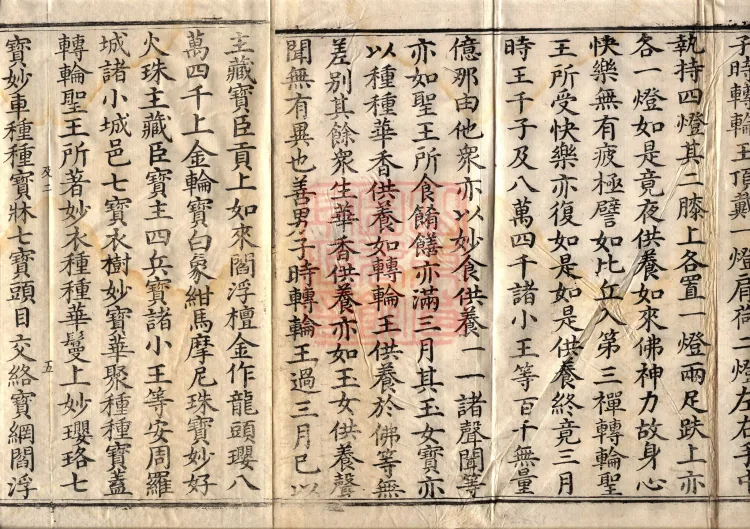 子時轉輪王頂戴一燈肩荷二燈左右手中
執持四燈其二膝上各置一燈兩足趺上亦
各一燈如是竟夜供養如來佛神力故身心
快樂無有疲極譬如比丘入第三禪轉輪聖
王所受快樂亦復如是如是供養終竟三月
時王千子及八萬四千諸小王等百千無量
億那由他衆亦以妙食供養一一諸聲聞等
亦如聖王所食餚饍亦滿三月其王女寶亦
以種種華香供養如轉輪王供養於佛等無
差別其餘衆生華香供養亦如王女供養聲
聞無有異也善男子時轉輪王過三月已以
主藏寶臣貢上如來閻浮檀金作龍頭瓔八
萬四千上金輪寶白象紺馬摩尼珠寶妙好
火珠主藏臣寶主四兵寶諸小王等安周羅
城諸小城邑七寶衣樹妙寶華聚種種寶蓋
轉輪聖王所著妙衣種種華鬘上妙瓔珞七
及二
五
寶妙車種種寶牀七寶頭目交絡寶網閻浮